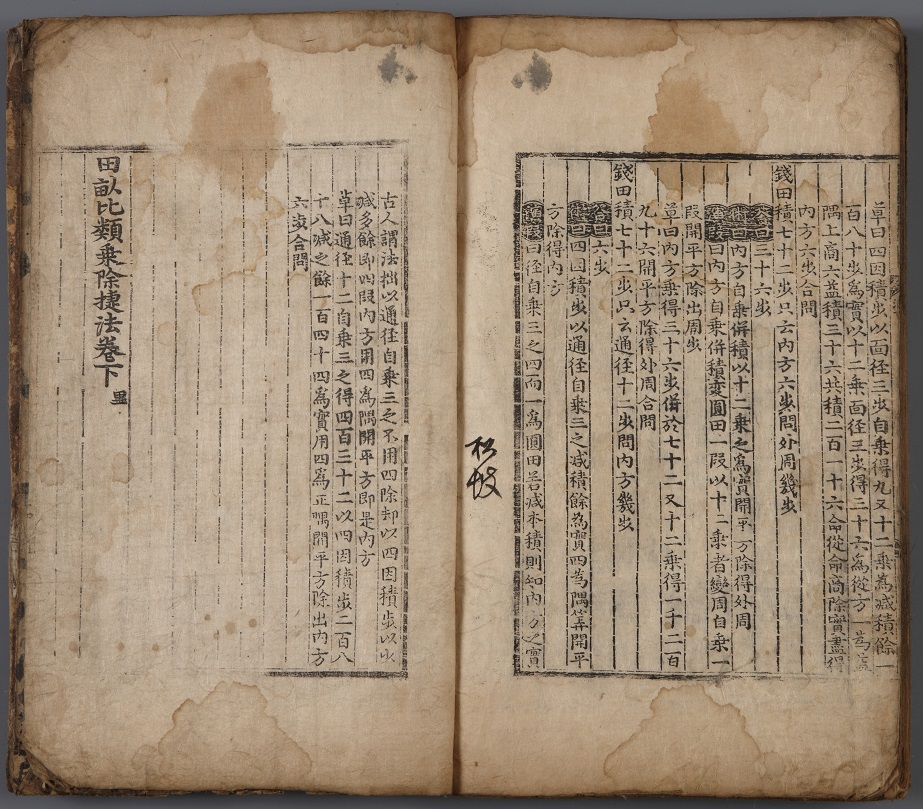 草曰四因積步以面徑三步自乘得九又十二乘為減積餘一
百八十步為實以十二乘面徑三步得三十六為從方一為
隅上商六益積三十六共積二百一十六命從命商除實盡得
內方六步合問
錢田積七十二步只云內方六步問外周幾步
荅曰三十六步
術曰內方自乘併積以十二乘之為實開平方除得外周
曰內方自乘併積変圓田一段以十二乘者變周自乘一
段開平方除出周步
草曰內方乘得三十六步併於七十二又十二乘得一千二百
九十六開平方除得外周合問
錢田積七十二步只云通徑十二步問內方幾步
荅曰六步
術曰四因積步以通徑自乘三之減積餘為實四為隅筭開平
方除得內方
曰徑自乘三之四而一為圓田若減本積則如內方之實
松坡
古人謂法拙以通徑自乘三之不用四除却以四因積步以少
減多餘即四段內方用四為隅開平方即是內方
草曰通徑十二自乘三之得四百三十二以四因積步二百八
十八減之餘一百四十四為實用四為正隅開平方除出內方
六步合問
田畝比類乘除捷法卷下